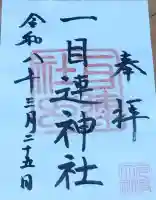 奉拝
一目連神社
令和八年三月二十五日